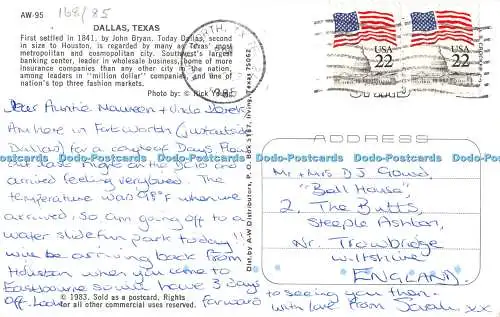 AW-95
168/85
DALLAS, TEXAS
First settled in 1841, by John Bryan. Today Dallas, second
in size to Houston, is regarded by many as Texas' most
metropolitan and cosmopolitan city. Southwest's largest
banking center, leader in wholesale business, home of more
insurance companies than any other city in the nation,
among leaders in "million dollar" companies, and one of
nation's top three fashion markets.
Photo by: © Rick
1985
USA
22
USA
22
Dear Auntie Maureen + Uncle Derek
Am here in Fort Worth (just outside
Dallas) for a couple of Days. Flew
out last night on the DC10 and
arrived feeling very tired. The
temperature was 98°F when we
arrived. So am going off to a
water slide fun park today!!
will be arriving back from
Houston when you come to
Eastbourne so will have 3 days
off. Look forward to seeing you then.
with love from Sarah xx
© 1983. Sold as a postcard. Rights
for all other commercial uses reserved.
Dist. by A-W Distributors, P. O. Box 3167, Irving, Texas 75062
ADDRESS
Mr + Mrs D J Gowd,
"Ball House"
2, The Butts,
Steeple Ashton,
Nr. Trowbridge
Wiltshire
ENGLAND.
Dodo-Postcards Dodo-Postcards Dodo-Postcards Dodo-Postcards Dodo-Postcards Dodo-Postcards